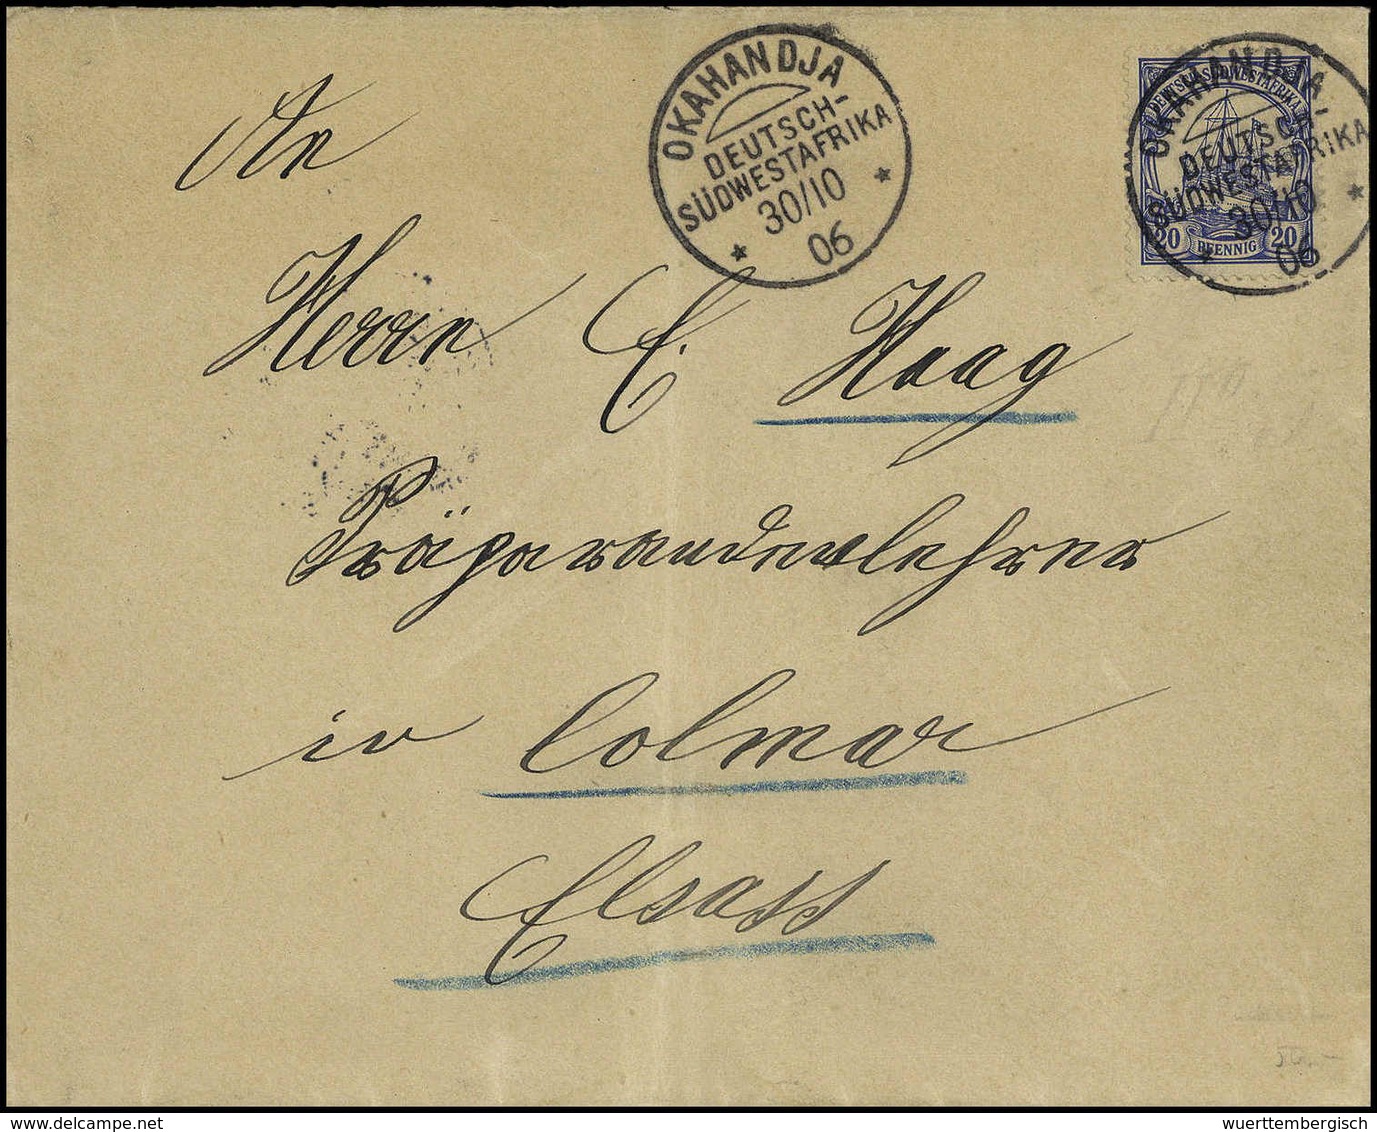 OKAHANDJA
DEUTSCH-
SÜDWESTAFRIKA
30/10
06
OKAHANDJA
DEUTSCH-
SÜDWESTAFRIKA
30/10
06
DEUTSCH-SÜDWESTAFRIKA
20 PFENNIG 20
An
Herrn E. Haag
Präparandenlehrer
in Colmar
Elsass
delcampe.net
wuerttembergisch